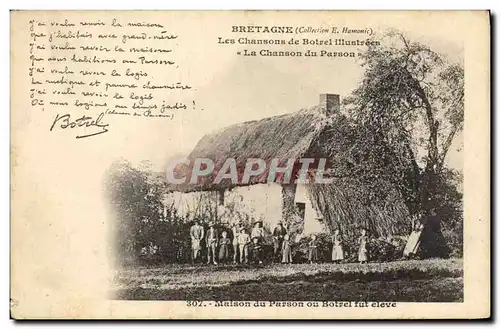 BRETAGNE (Collection E. Hamonic)
Les Chansons de Botrel illustrées
« La Chanson du Parson »
J'ai voulu revoir la maison
que j'habitais avec grand-mère
J'ai voulu revoir la maison
que nous habitions au Parson.
J'ai voulu revoir le logis
Le rustique et pauvre chaumière
J'ai voulu revoir le logis
Où nous logions au temps jadis !
(Chanson du Parson)
Botrel
CPAREMA
307. - Maison du Parson où Botrel fut élevé